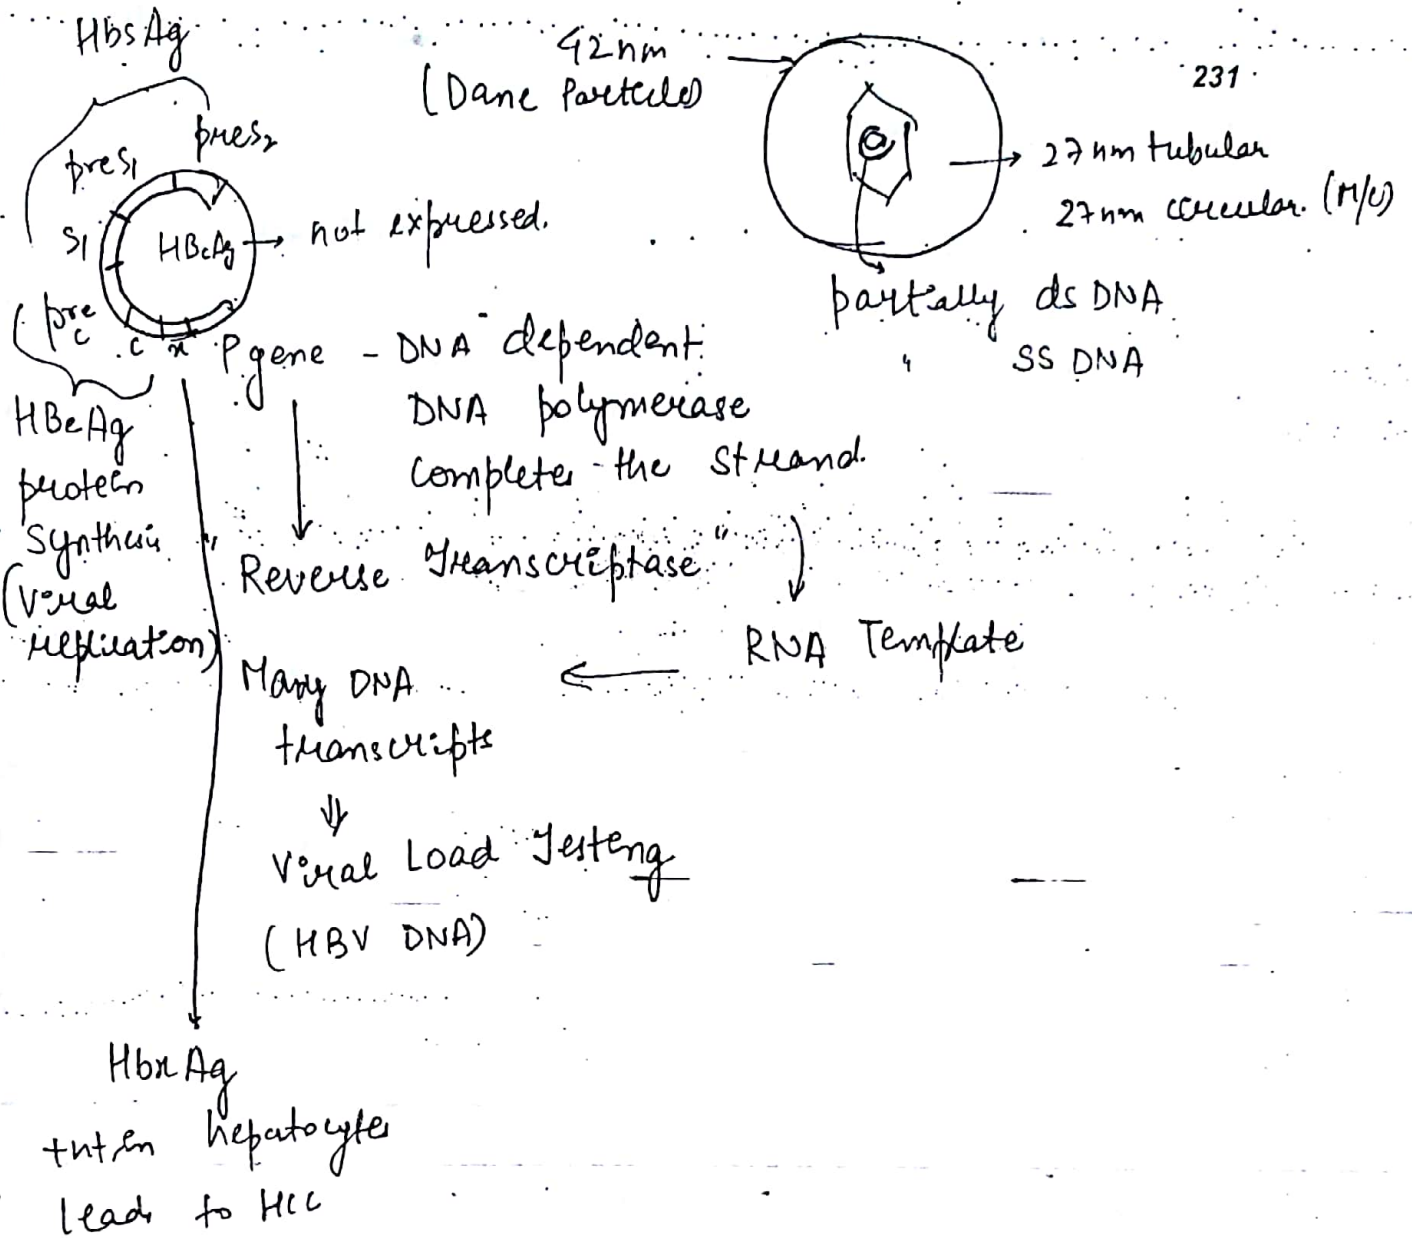 HbsAg
42nm
(Dane Particles)
231
pres2
pres1
S1
HBcAg → not expressed.
→ 27nm tubular
27nm circular. (M/C)
pre
c
c
x
partially ds DNA
" SS DNA
P gene - DNA dependent
DNA polymerase
completes the strand.
HBeAg
protein
synthesis
(viral
replication)
"Reverse Transcriptase"
RNA Template
Many DNA
transcripts
Viral Load Testing
(HBV DNA)
HbxAg
in hepatocytes
leads to HCC